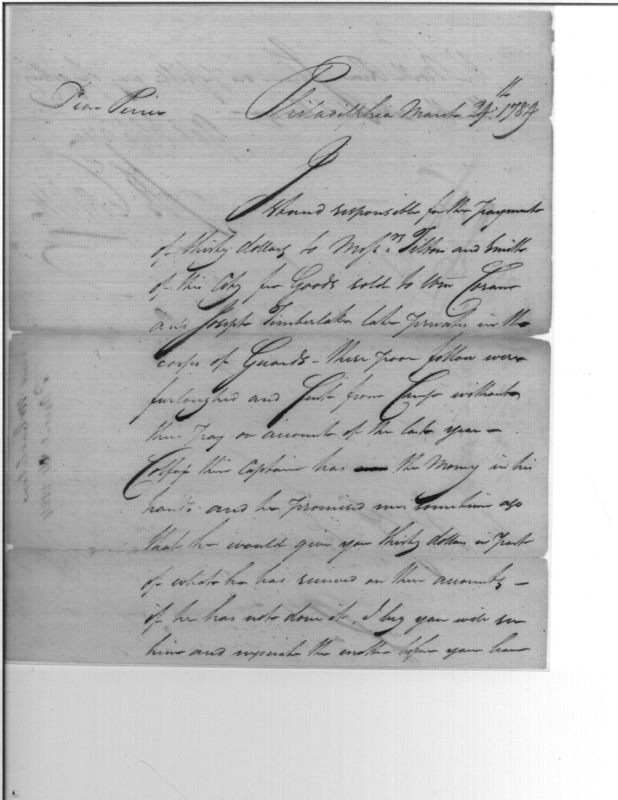 Dear Pierce Philadelphia March 24th 1784
I
stand responsible for the payment
of thirty dollars to Messrs Tilton and Smith
of this City for Goods sold to Wm Coram
and Joseph Timberlake late privates in the
corps of Guards - these poor fellow were
furloughed and Sent from Camp without
their Pay on account of the last year -
Colfax their Captain has the Money in his
hands and he promised me sometime ago
that he would give you thirty dollars in part
of what he has received on their accounts -
if he has not done it, I beg you will see
him and negociate the matter before you leave